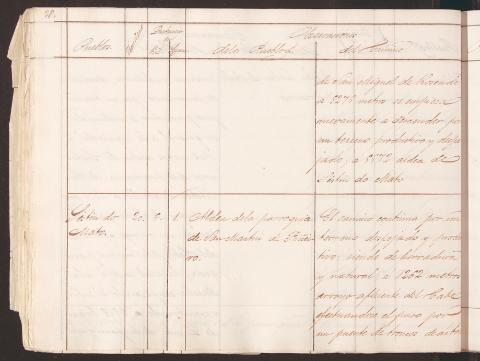 28.
Observaciones
Pueblos.
de los Pueblos.
del Camino
de San Miguel de Rosende
a 5270 metros se empieza
nuevamente a descender por
un terreno productivo y despe-
jado, a 5572 aldea de
Sistin do Mato
Sistin do
Mato.
20.
2.
1.
Aldea de la parroquia
de San Martin de
ro.
El camino continua por un
terreno despejado y produc-
tivo, siendo de herradura
y natural a 1262 metros
arroyo afluente del Cabe
efectuandose el paso por
un puente de troncos de arbo